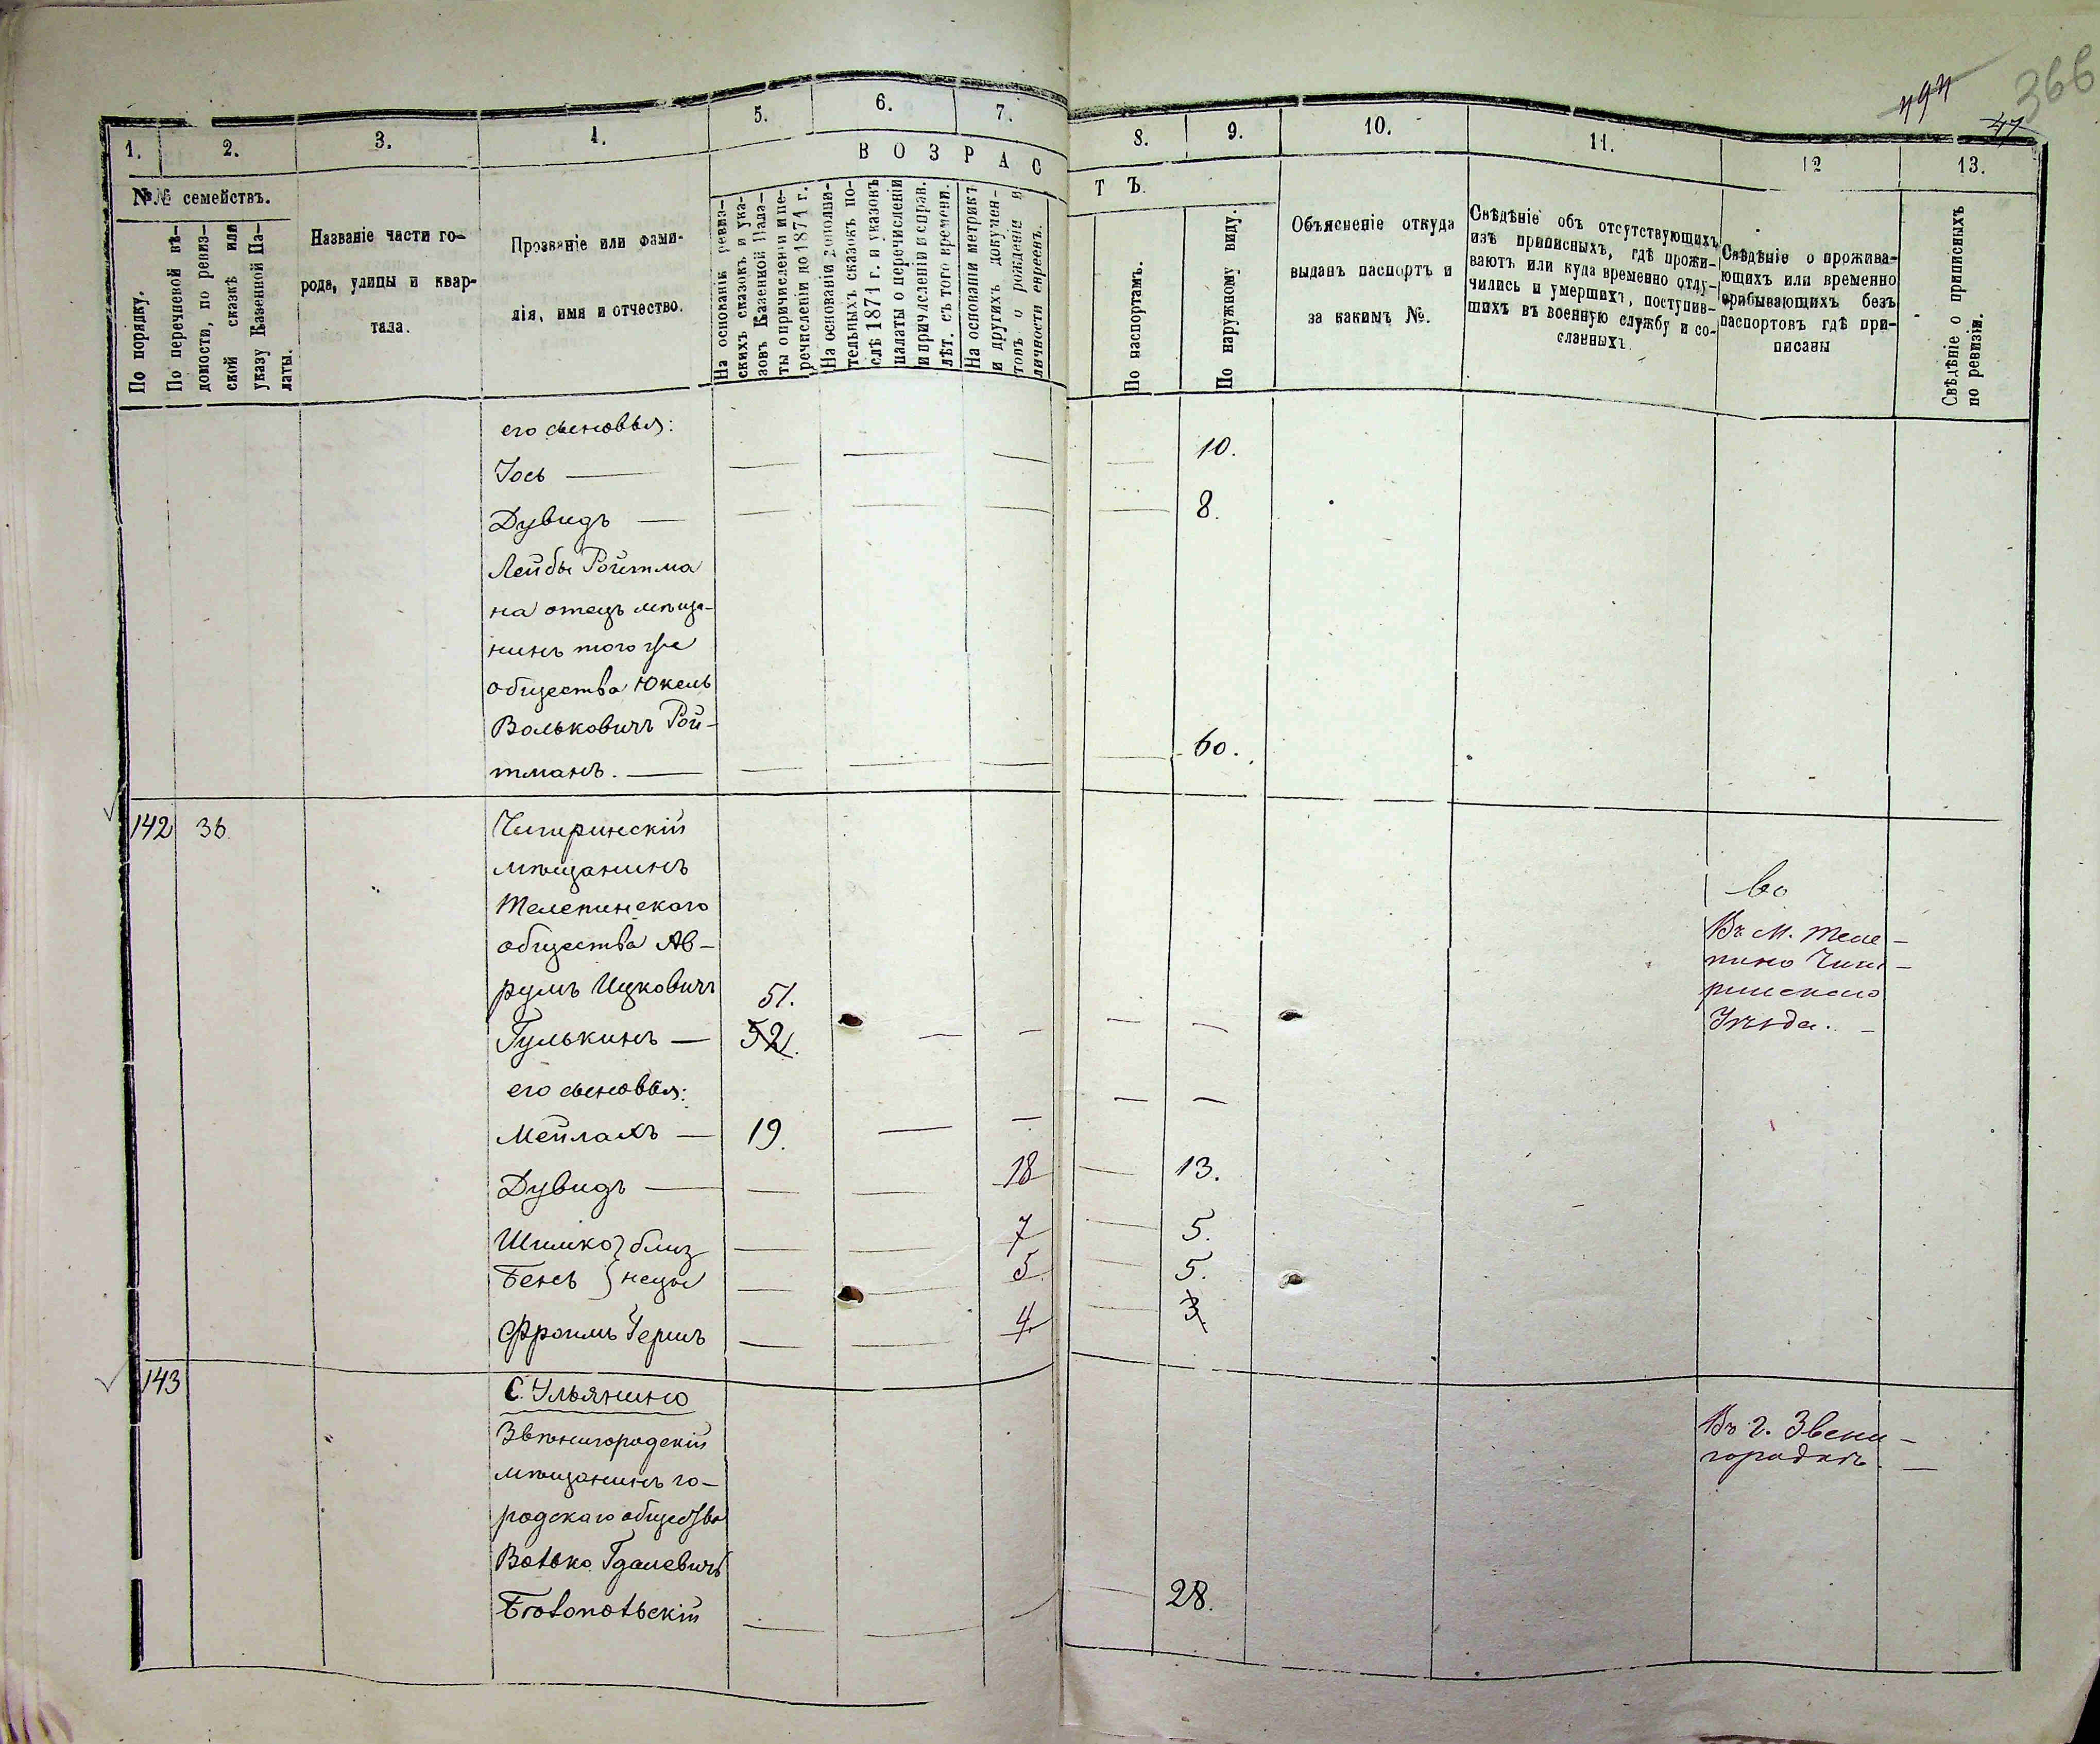 494
47
366
1.
2.
3.
4.
5.
6.
7.
8.
9.
10.
11.
12
13.
В О З Р А С Т Ъ.
№№ семействъ.
По порядку.
По перечневой вѣ-
домости, по ревиз-
ской сказкѣ или
указу Казенной Па-
латы.
Названіе части го-
рода, улицы и квар-
тала.
Прозваніе или фами-
лія, имя и отчество.
На основаніи ревиз-
скихъ сказокъ и ука-
зовъ Казенной Пала-
ты о причисленіи и пе-
речисленіи до 1874 г.
На основаніи дополни-
тельныхъ сказокъ по-
слѣ 1874 г. и указовъ
палаты о перечисленіи
и причисленіи и справ.
лѣт. съ того времени.
На основаніи метрикъ
и другихъ докумен-
товъ о рожденіи и
личности евреевъ.
По паспортамъ.
По наружному виду.
Объясненіе откуда
выданъ паспортъ и
за какимъ №.
Свѣдѣніе объ отсутствующихъ
изъ приписныхъ, гдѣ прожи-
ваютъ или куда временно отлу-
чились и умершихъ, поступив-
шихъ въ военную службу и со-
сланныхъ
Свѣдѣніе о прожива-
ющихъ или временно
прибывающихъ безъ
паспортовъ гдѣ при-
писаны
Свѣдѣніе о приписныхъ
по ревизіи.
его сыновья:
Іось — 10.
Дувидъ — 8.
Лейбы Ройтма
на отецъ мѣща-
нинъ того же
общества Юкель
Вольковичъ Рой-
тманъ. — 60.
142 36
Чигиринскій
мѣщанинъ
Телепинского
общества Ав-
румъ Ицковичъ 51.
Гулькинъ — 52.
Въ м. Теле-
пино Чиги-
ринскаго
Уѣзда. —
его сыновья:
Мейлахъ — 19.
Дувидъ — 18 13.
Шимко } близ 7 5.
Бень } нецы 5. 5.
Фроимъ Гершъ 4. 3
143
С. Ульянино
Звѣнигородскій
мѣщанинъ го-
родскаго общества
Волько Гдалевичъ
Бѣлопольскій 28.
Въ г. Звени-
городкѣ. —